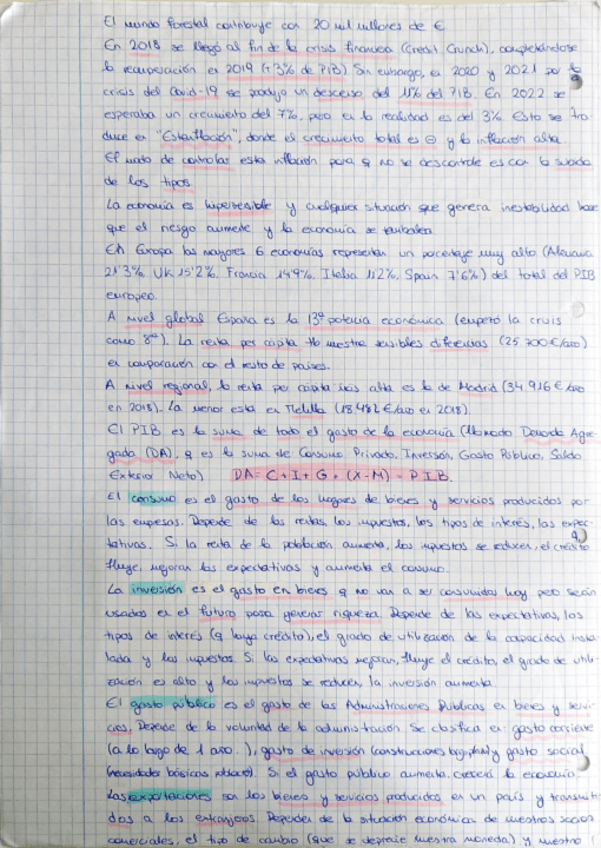 El mundo forestal contribuye con 20 mil millones de €
En 2018 se llegó al fin de la crisis financiera (Credit Crunch), completándose
la recuperación en 2019 (+3% de PIB). Sin embargo, en 2020 y 2021 por la
crisis del Covid-19 se produjo un descenso del 11% del PIB. En 2022 se
esperaba un crecimiento del 7%, pero en la realidad es del 3%. Esto se tra
duce en "Estanflación", donde el crecimiento total es ⊖ y la inflación alta.
El modo de controlar esta inflación para q no se descontrole es con la subida
de los tipos.
La economía es hipersensible y cualquier situación que genera inestabilidad hace
que el riesgo aumente y la economía se tambalea
En Europa las mayores 6 economías representan un porcentaje muy alto (Alemania
21'3%, UK 15'2%, Francia 14'9%, Italia 11'2%, Spain 7'6%) del total del PIB
europeo.
A nivel global España es la 13ª potencia económica (empezó la crisis
como 8ª). La renta per cápita tb muestra sensibles diferencias (25 700 €/año)
en comparación con el resto de países.
A nivel regional, la renta per cápita más alta es la de Madrid (34 916 €/año
en 2018). La menor está en Melilla (18 482 €/año en 2018)
El PIB es la suma de todo el gasto de la economía (llamado Demanda Agre
gada (DA), q es la suma de Consumo Privado, Inversión, Gasto Público, Saldo
Exterior Neto) DA = C + I + G + (X-M) = PIB.
El consumo es el gasto de los hogares de bienes y servicios producidos por
las empresas. Depende de las rentas, los impuestos, los tipos de interés, las expec-
tativas. Si la renta de la población aumenta, los impuestos se reducen, el crédito
fluye, mejoran las expectativas y aumenta el consumo.
La inversión es el gasto en bienes q no van a ser consumidos hoy pero serán
usados en el futuro para generar riqueza. Depende de las expectativas, los
tipos de interés (q haya crédito), el grado de utilización de la capacidad insta
lada y los impuestos. Si las expectativas mejoran, fluye el crédito, el grado de utili-
zación es alto y los impuestos se reducen, la inversión aumenta.
El gasto público es el gasto de las Administraciones Públicas en bienes y servi-
cios. Depende de la voluntad de la administración. Se clasifica en gasto corriente
(a lo largo de 1 año...), gasto de inversión (construcciones y gasto social
(necesidades básicas Si el gasto público aumenta, crecerá la economía
Las exportaciones son los bienes y servicios producidos en un país y transmiti
dos a los extranjeros. Dependen de la situación económica de nuestros socios
comerciales, el tipo de cambio (que se deprecie nuestra moneda) y nuestro